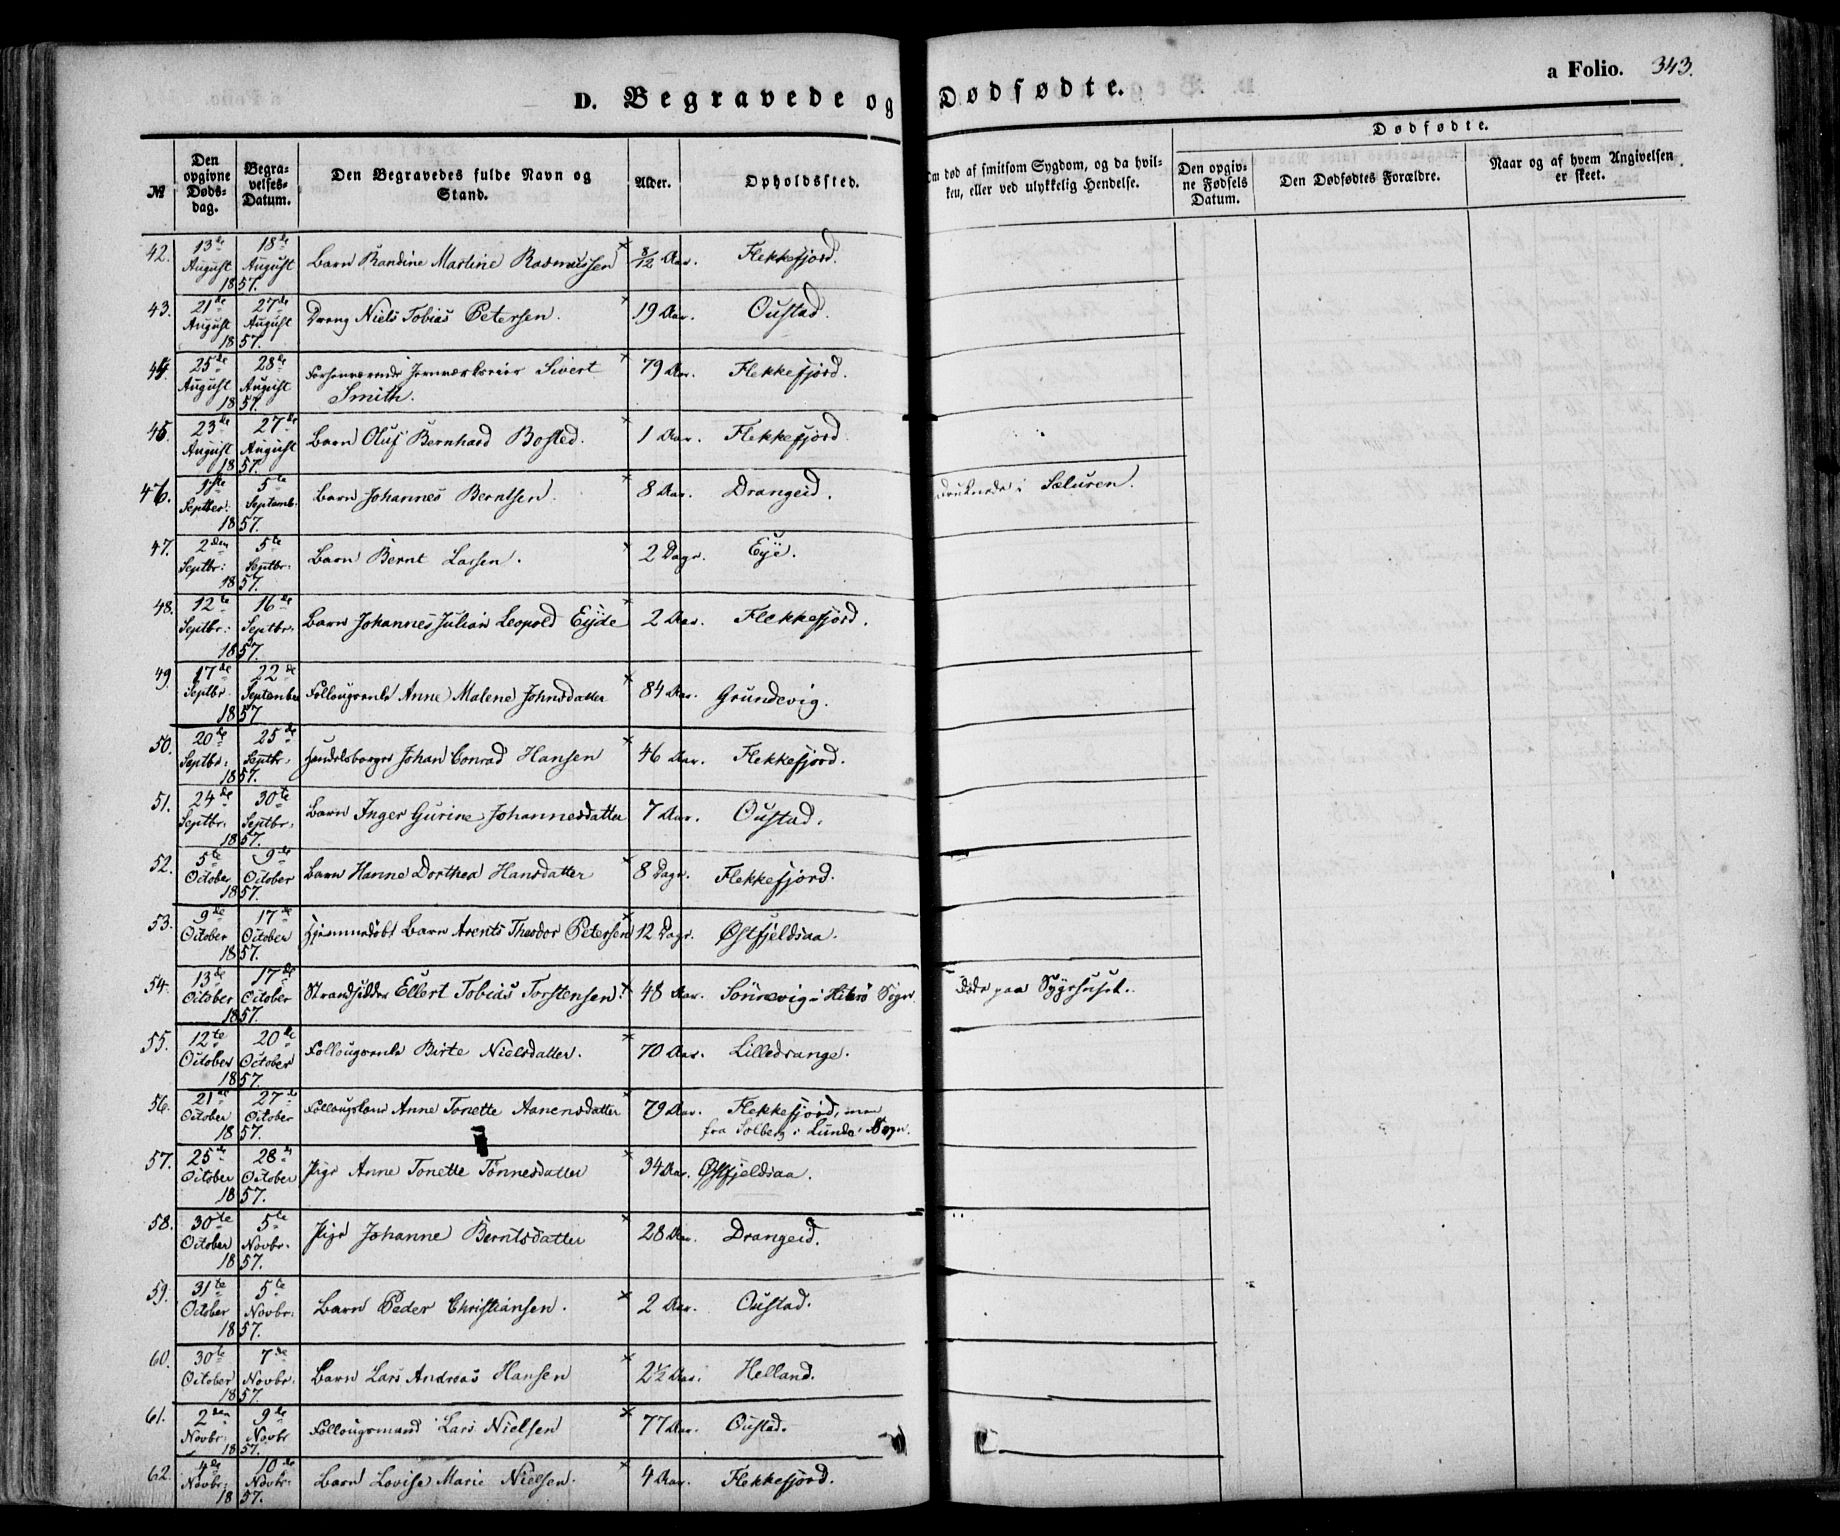 D. Begravede og Dødfødte.
a Folio. 343.
No
Den opgivne Døds-dag.
Begra-velses-Datum.
Den Begravedes fulde Navn og Stand.
Alder.
Opholdssted.
Om død af smitsom Sygdom, og da hvil-ken, eller ved ulykkelig Hendelse.
Dødfødte.
Den opgiv-ne Fødsels Datum.
Den Dødfødtes Forældre.
Naar og af hvem Angivelsen er skeet.
42. 13de August 18de August 1857. Barn Randine Martine Rasmussen × 8/12 Aar. Flekkefjord.
43. 21de August 27de August 1857. Dreng Niels Tobias Petersen. × 19 Aar. Oustad.
44. 25de August 28de August 1857. Forhenværende Jernværkseier Sivert Smith. × 79 Aar. Flekkefjord.
45. 23de August 27de August 1857. Barn Oluf Bernhard Bosted. × 1 Aar. Flekkefjord.
46. 1ste Septber: 5te Septemb. 1857. Barn Johannes Berntsen. × 8 Aar. Drangeid. druknede i Sæluren.
47. 2den Septbr: 5te Septbr: 1857. Barn Bernt Larsen. × 2 Dage. Eye.
48. 12te Septbr: 16de Septbr: 1857. Barn Johannes Julian Leopold Eyde × 2 Aar. Flekkefjord.
49. 17de Septbr. 22de September 1857 Follougsenke Anne Malene Johnsdatter × 84 Aar. Grundevig.
50. 20de Septbr: 25de Septbr. 1857. Handelsborger Johan Conrad Hansen × 46 Aar. Flekkefjord.
51. 24de Septbr. 30te Septbr. 1857. Barn Inger Gurine Johannesdatter × 7 Aar. Oustad.
52. 5te October 9de October 1857. Barn Hanne Dorthea Hansdatter × 8 Dage. Flekkefjord.
53. 9de October 17de October 1857. Hjemmedøbt Barn Arents Theodor Petersen × 12 Dage. Østfjeldsaa.
54. 13de October 17de October 1857. Strandsidder Ellert Tobias Torstensen. × 48 Aar. Sønnevig i Hiterø Sogn. døde paa Sygehuset.
55. 12te October 20de October 1857. Follougsenke Birte Nielsdatter. × 70 Aar. Lilledrange.
56. 21de October 27de October 1857. Follougskone Anne Tonette Aanensdatter × 79 Aar. Flekkefjord, men fra Solberg i Lunde Sogn.
57. 25de October 28de October 1857. Pige Anne Tonette Tønnesdatter × 34 Aar. Østfjeldsaa.
58. 30te October 5te Novbr. 1857. Pige Johanne Berntsdatter × 28 Aar. Drangeid.
59. 31te October 5te Novbr: 1857. Barn Peder Christiansen. × 2 Aar. Oustad.
60. 30te October 7de Novbr. 1857. Barn Lars Andreas Hansen × 2½ Aar. Helland.
61. 2den Novbr: 9de Novbr 1857. Follougsmand Lars Nielsen × 77 Aar. Oustad.
62. 4de Novbr: 10de Novbr. 1857. Barn Lovise Marie Nielsen. × 4 Aar. Flekkefjord.